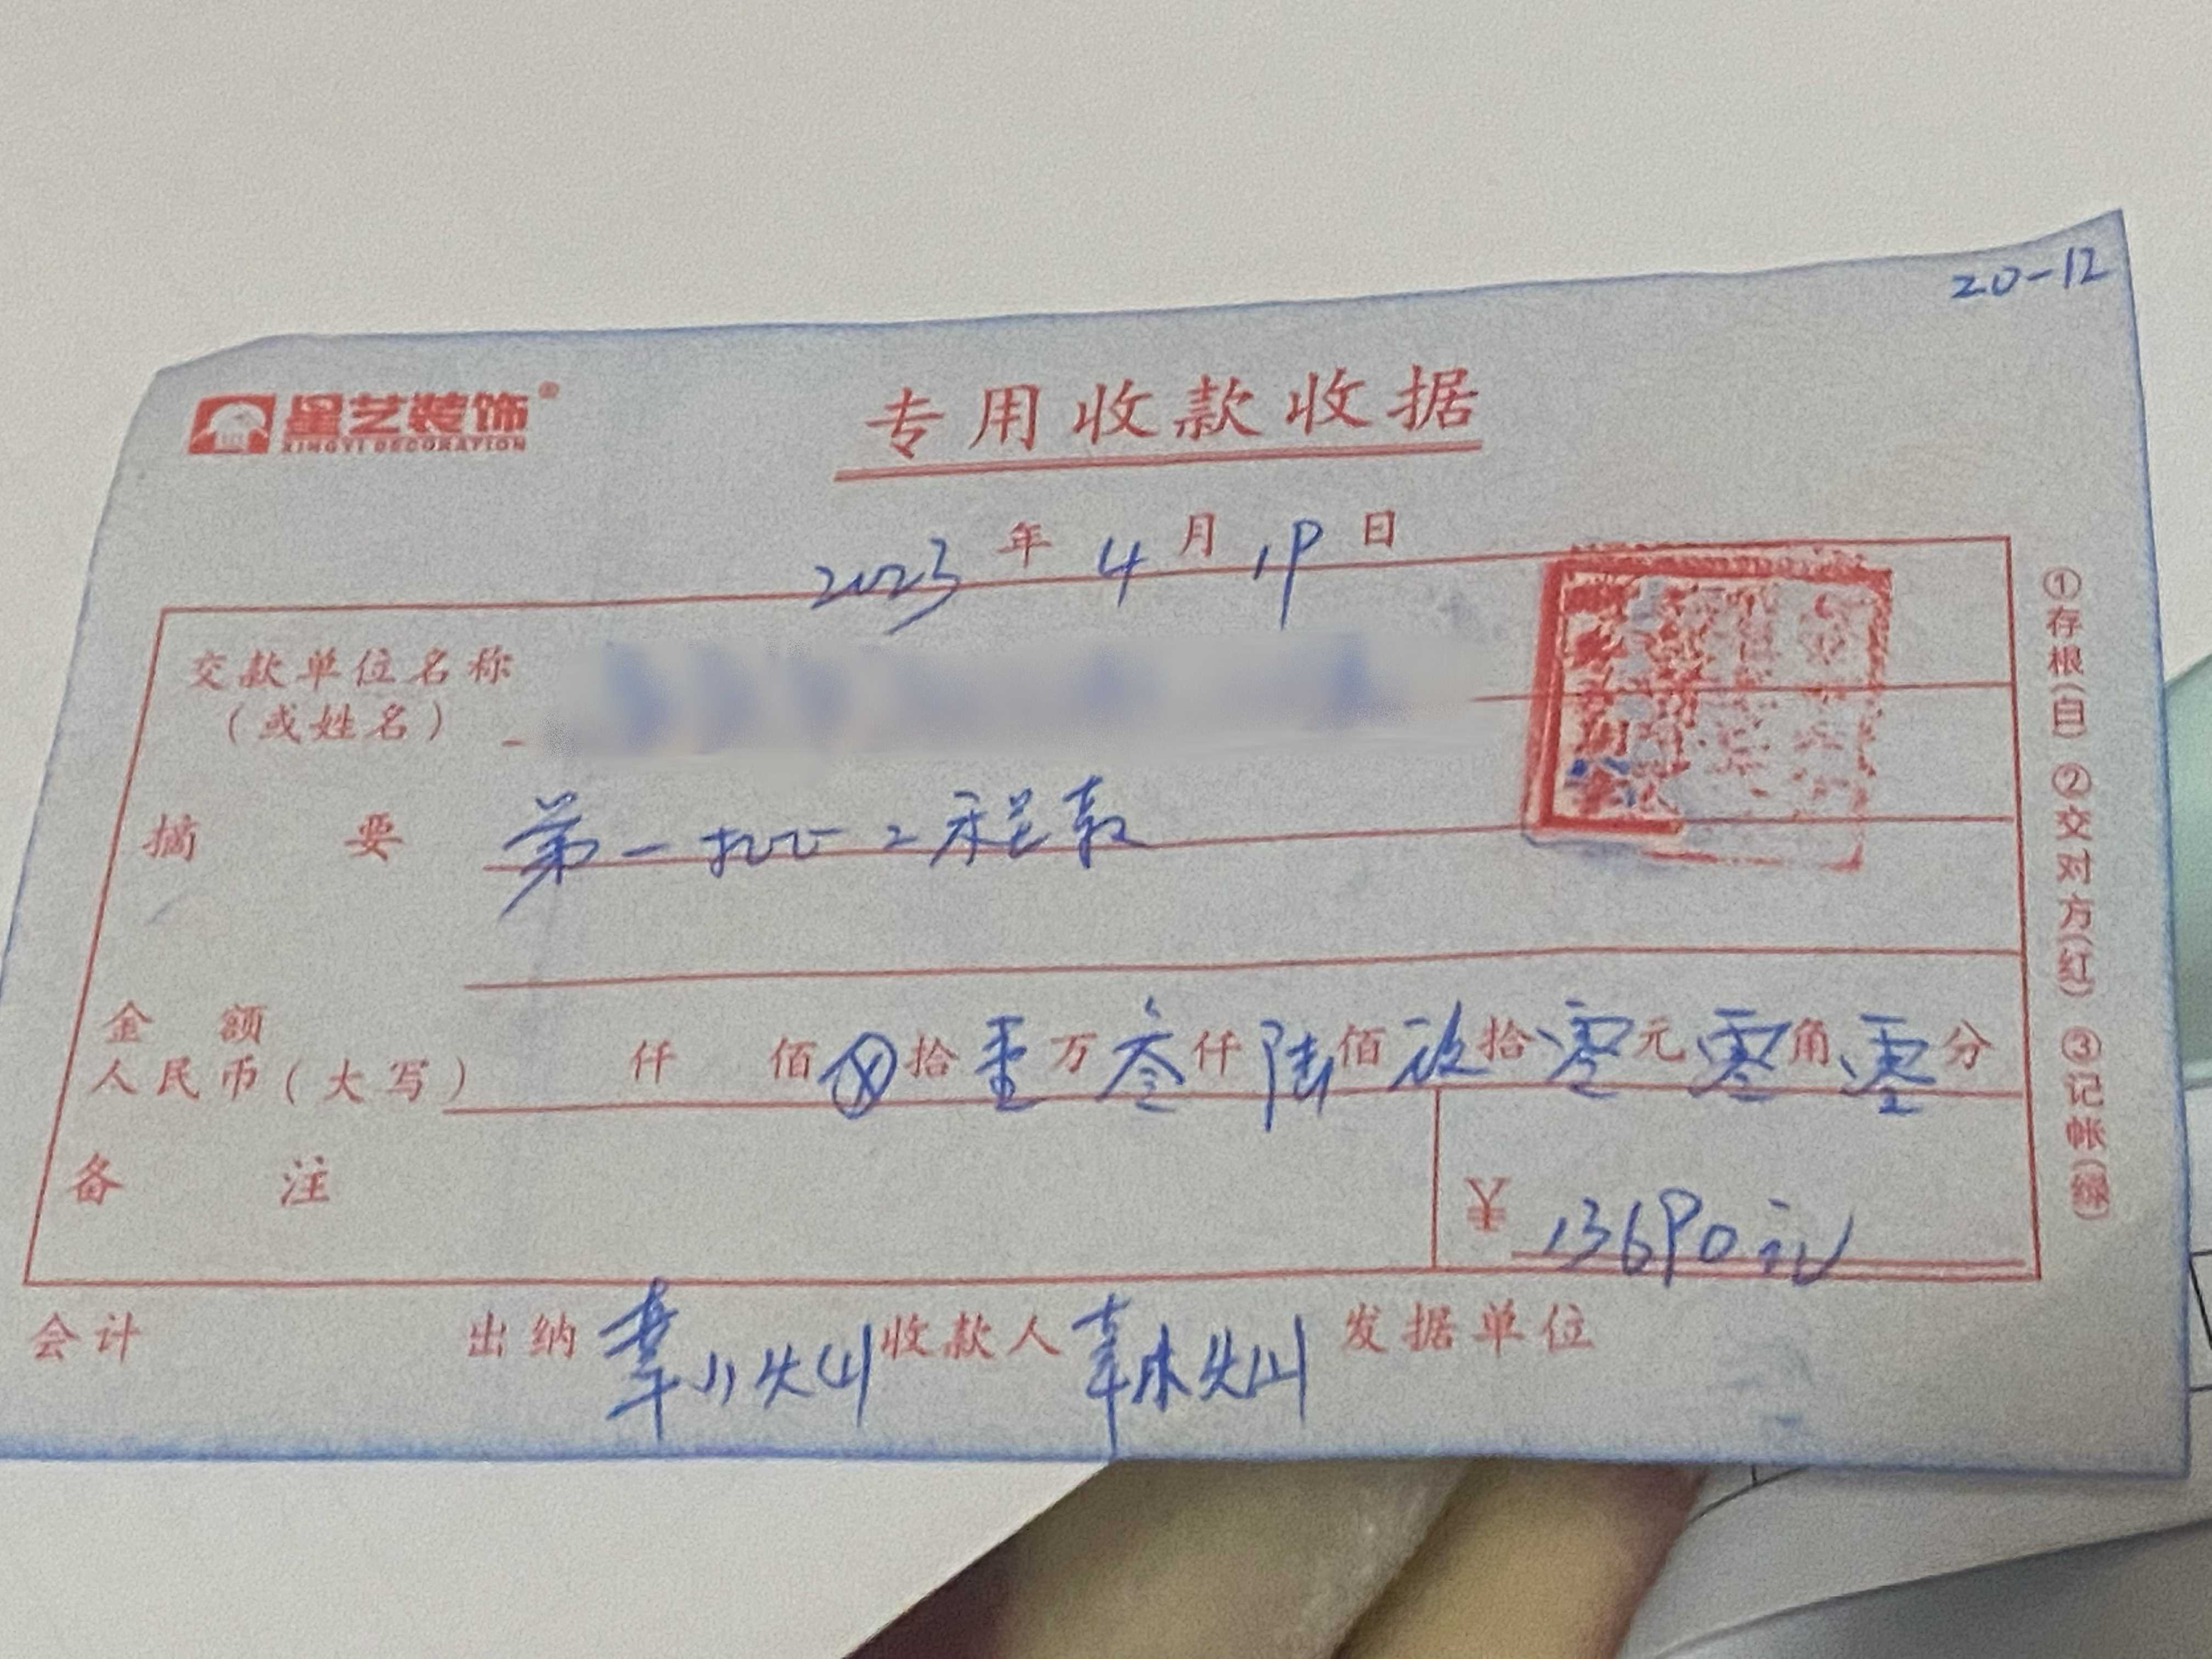 20-12
星艺装饰®
XINGYI DECORATION
专用收款收据
2023年4月19日
交款单位名称
(或姓名)
摘要 第一批工程款
金额
人民币(大写) 仟 佰ⓧ拾壹万叁仟陆佰玖拾零元零角零分
备注
¥ 13690元
会计 出纳 收款人 发据单位
①存根(白) ②交对方(红) ③记帐(绿)